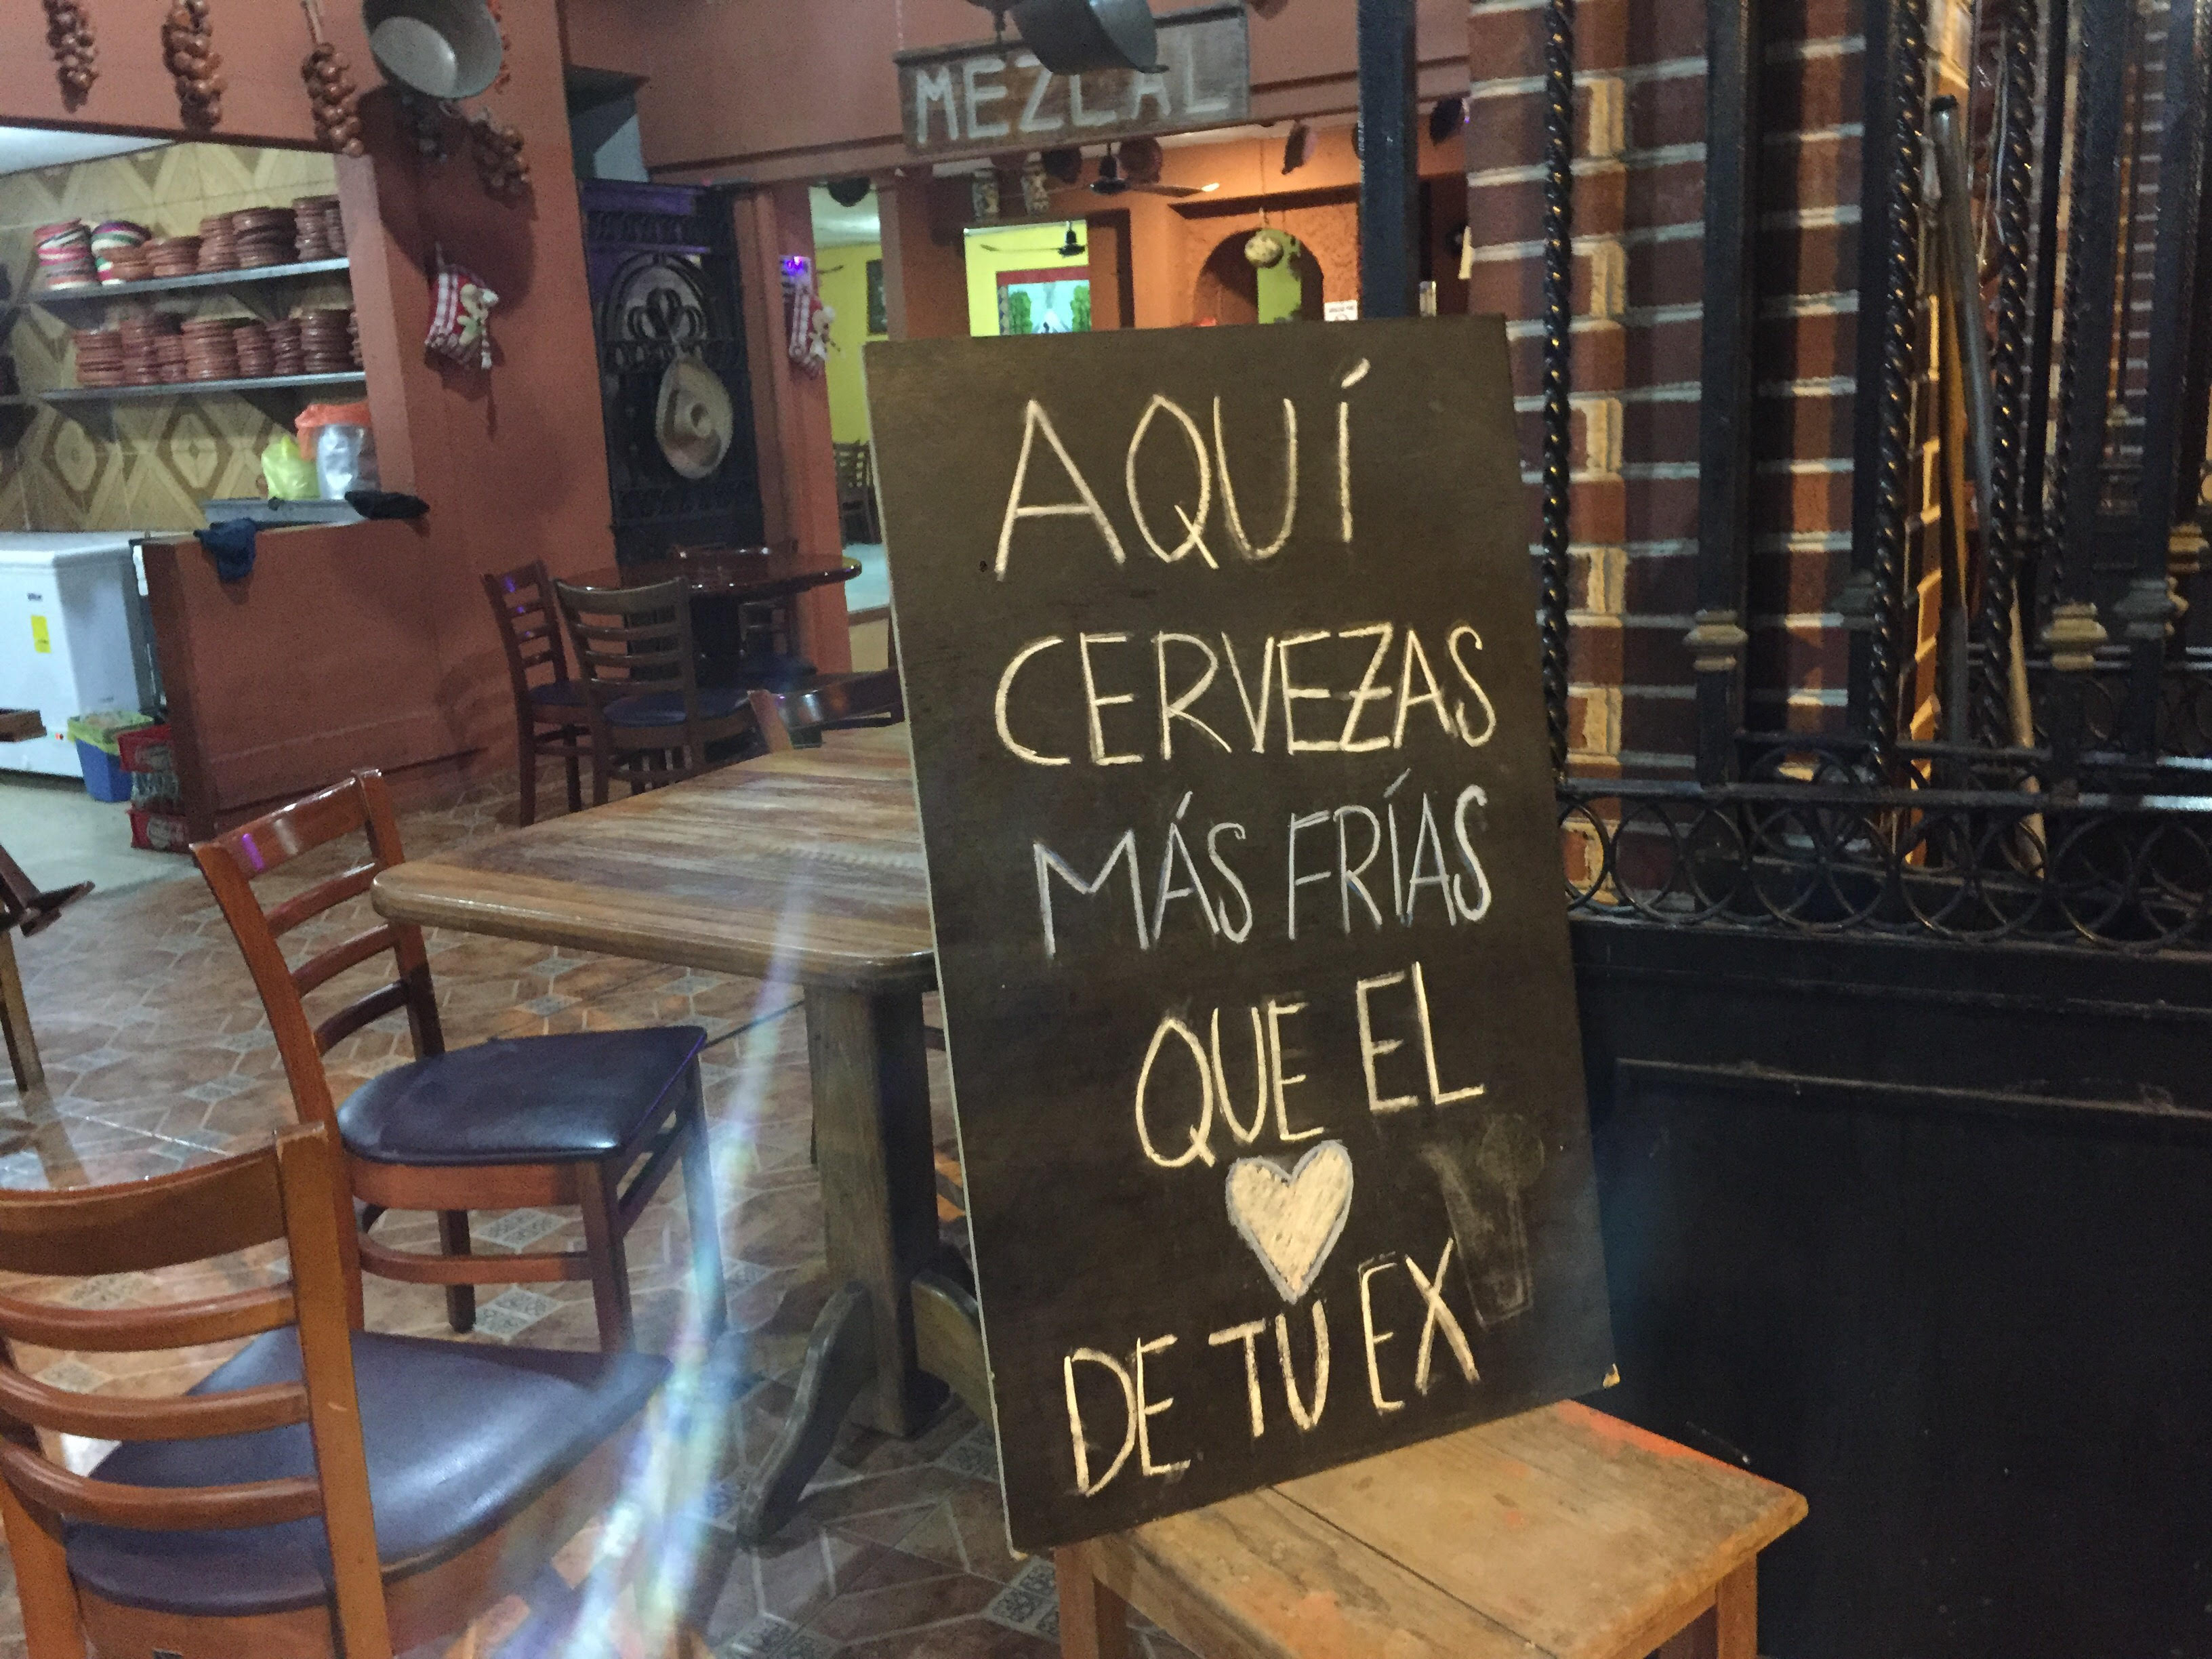 MEZCAL
AQUÍ
CERVEZAS
MÁS FRÍAS
QUE EL
DE TU EX